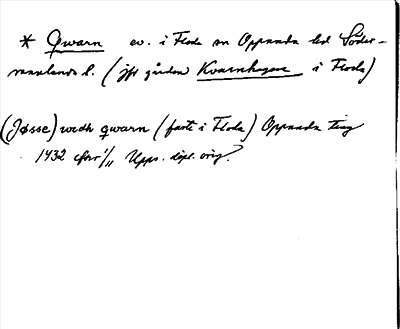 * Qwarn ev. i Floda sn Oppunda hd Söder-
manlands l. (jfr gården Kvarnhagen i Floda)
(Jøsse) widh qwarn (faste i Floda) Oppunda ting
1432 efter 1/11 Upps. dipl. orig.